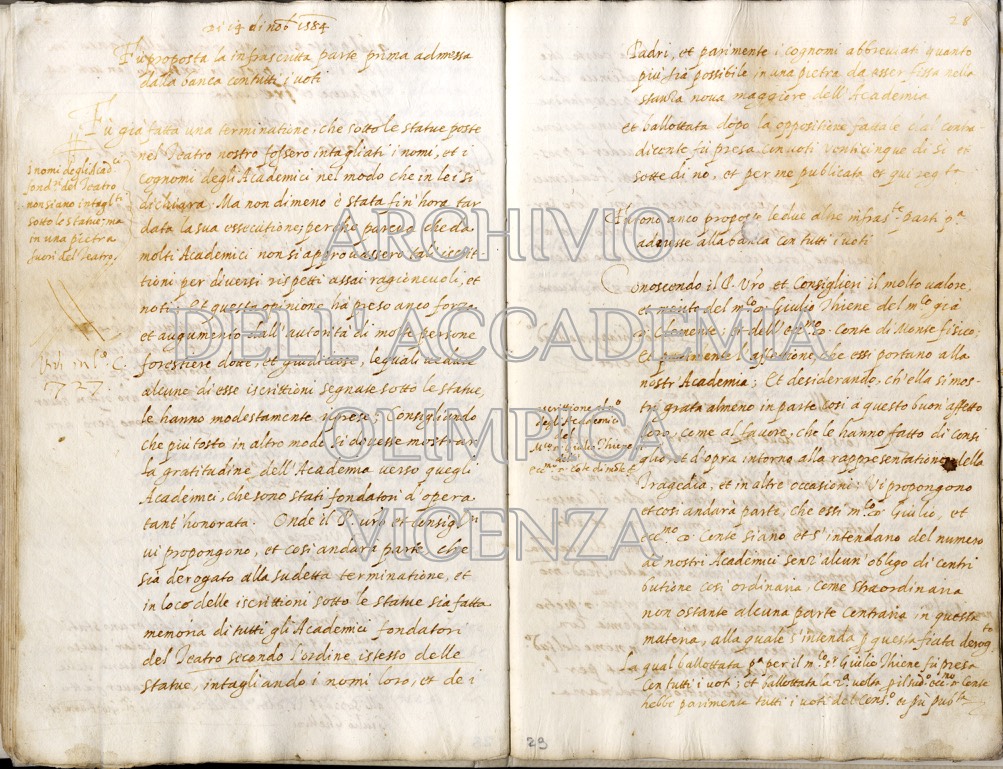 Di 14 di nob 1584
Fu proposta la infrascritta parte prima admessa
dalla banca con tutti i voti
Fu già fatta una terminatione, che sotto le statue poste
nel Teatro nostro fossero intagliati i nomi, et i
cognomi degli Academici nel modo che in lei si
dichiara. Ma non di meno è stata fin'hora tar
data la sua essecutione, perche paredo che da
molti Academici non si approvassero tali iscrit
tioni per diversi rispetti assai ragionevoli, et
noti. Et questa opinione ha preso anco forza
et augumento dall'autorità di molte persone
forestiere dotte, et giudiciose, lequali vedute
alcune di esse iscrittioni segnate sotto le statue,
le hanno modestamente riprese, Consigliando
che piu tosto in altro modo si dovesse mostrar
la gratitudine dell'Academia verso quegli
Academici, che sono stati fondatori d'opera
tant'honorata. Onde il P. vro et Consiglri
vi propongono, et cosi andarà parte, che
sia derogato alla sudetta terminatione, et
in loco delle iscrittioni sotto le statue sia fatta
memoria di tutti gli Academici fondatori
del Teatro secondo l'ordine istesso delle
statue, intagliando i nomi loro, et de i
i nomi degli Acad.ci
fond.ri del Teatro
non siano intagl.ti
sotto le statue; ma
in una pietra
fuori del Teatro,
C.
1727
28
Padri, et parimente i cognomi abbreviati quanto
più sia possibile in una pietra da esser fissa nella
stanza nova maggiore dell'Academia
et ballottata dopo la oppositione fattale dal contra
dicente fu presa con voti venticinque di si et
sette di no, et per me publicata et qui reg.ta
Furono anco proposte le due altre infras.te parti p.a
admesse alla banca con tutti i voti
Conoscendo il P. vro et Consiglieri il molto valore,
et merito del m.co Co: Giulio Thiene del m.co già
Co: Clemente; Et dell'ecc.mo Co: Conte di Monte fisico;
Et parimente l'affettione, che essi portano alla
nostr Academia; Et desiderando, ch'ella si mos-
tri grata almeno in parte così a questo buon'affetto
loro, come al favore, che le hanno fatto di consi
glio, et d'opra intorno alla rappresentatione della
Tragedia, et in altre occasioni: Vi propongono
et cosi andarà parte, che essi m.co Co: Giulio, et
ecc.mo Co: Conte siano et s'intendano del numero
de nostri Academici senz'alcun'obligo di contri
butione cosi ordinaria, come straordinaria
non ostante alcuna parte contraria in queste
materia, alla quale s'intenda p questa fiata derog.to
La qual ballottata p.a per il m.co Co: Giulio Thiene fu presa
con tutti i voti; et ballottata la 2.a volta p il sud.o ecc.mo Co: Conte
hebbe parimente tutti i voti del Cons.o et fu pub.ta
ascrittione del n.o
degli Academici
del
M.co Co: Giulio Thiene
dello
ecc.mo Co: Cote di mote
29
ARCHIVIO
DELL'ACCADEMIA
OLIMPICA
VICENZA